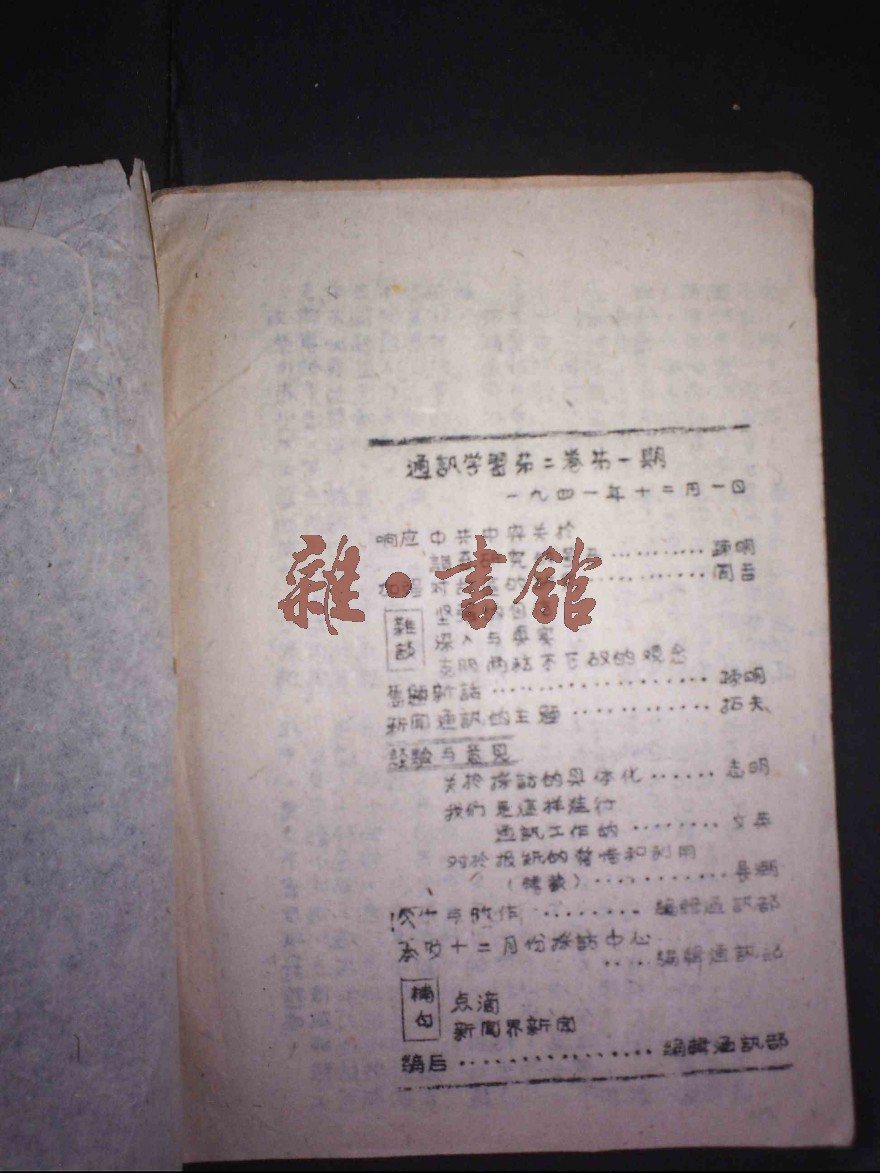 通訊学習第二卷第一期
一九四一年十二月一日
响应中共中央关於
調查研究 ………… 陳明
加强对 的 ………… 周吾
雜談
坚
深入与真实
克服两种不正 的观念
舊題新話 ………………… 陳明
新闻通訊的主題 ………… 拓夫
经验与意见
关於採訪的具体化 …… 志明
我们是怎样進行
通訊工作的 ……… 文英
对於报紙的 和利用
………… 長潮
与 作 ……… 编輯通訊部
本 十二月份採訪中心
…… 编輯通訊部
補白
点滴
新闻界新闻
编后 ……………… 编輯通訊部
雜·書館